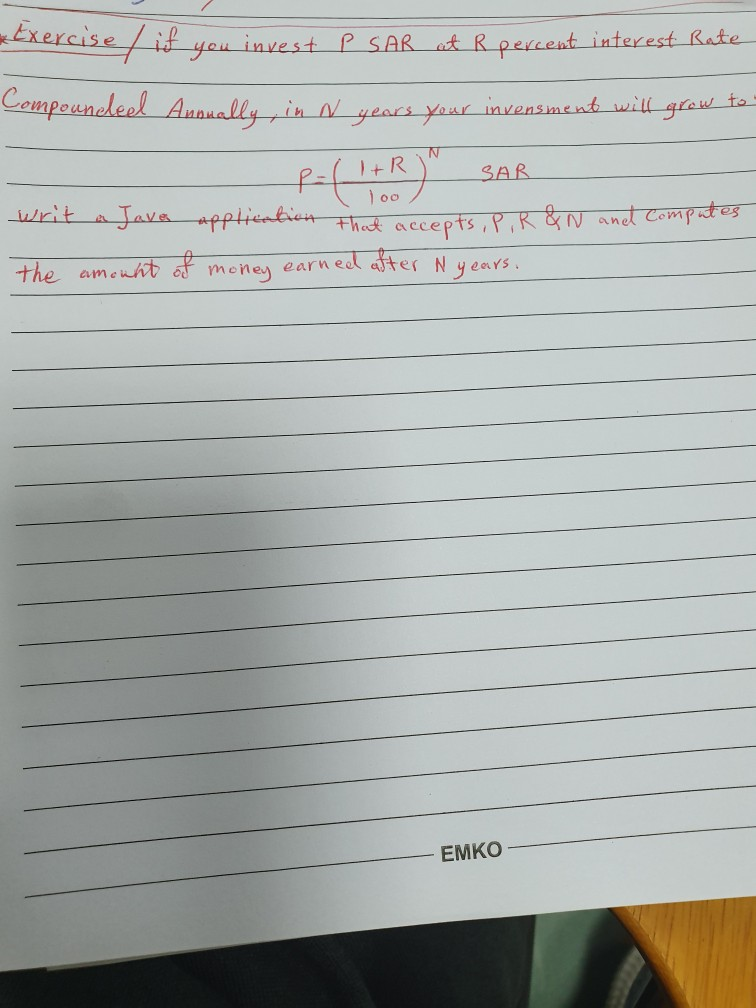 *Exercise / if you invest P SAR at R percent interest Rate
Compoundeel Annually, in N years your invensment will grow to:
P=(1+R/100)^N SAR
writ a Java application that accepts, P, R & N and Computes
the amount of money earned after N years.
EMKO